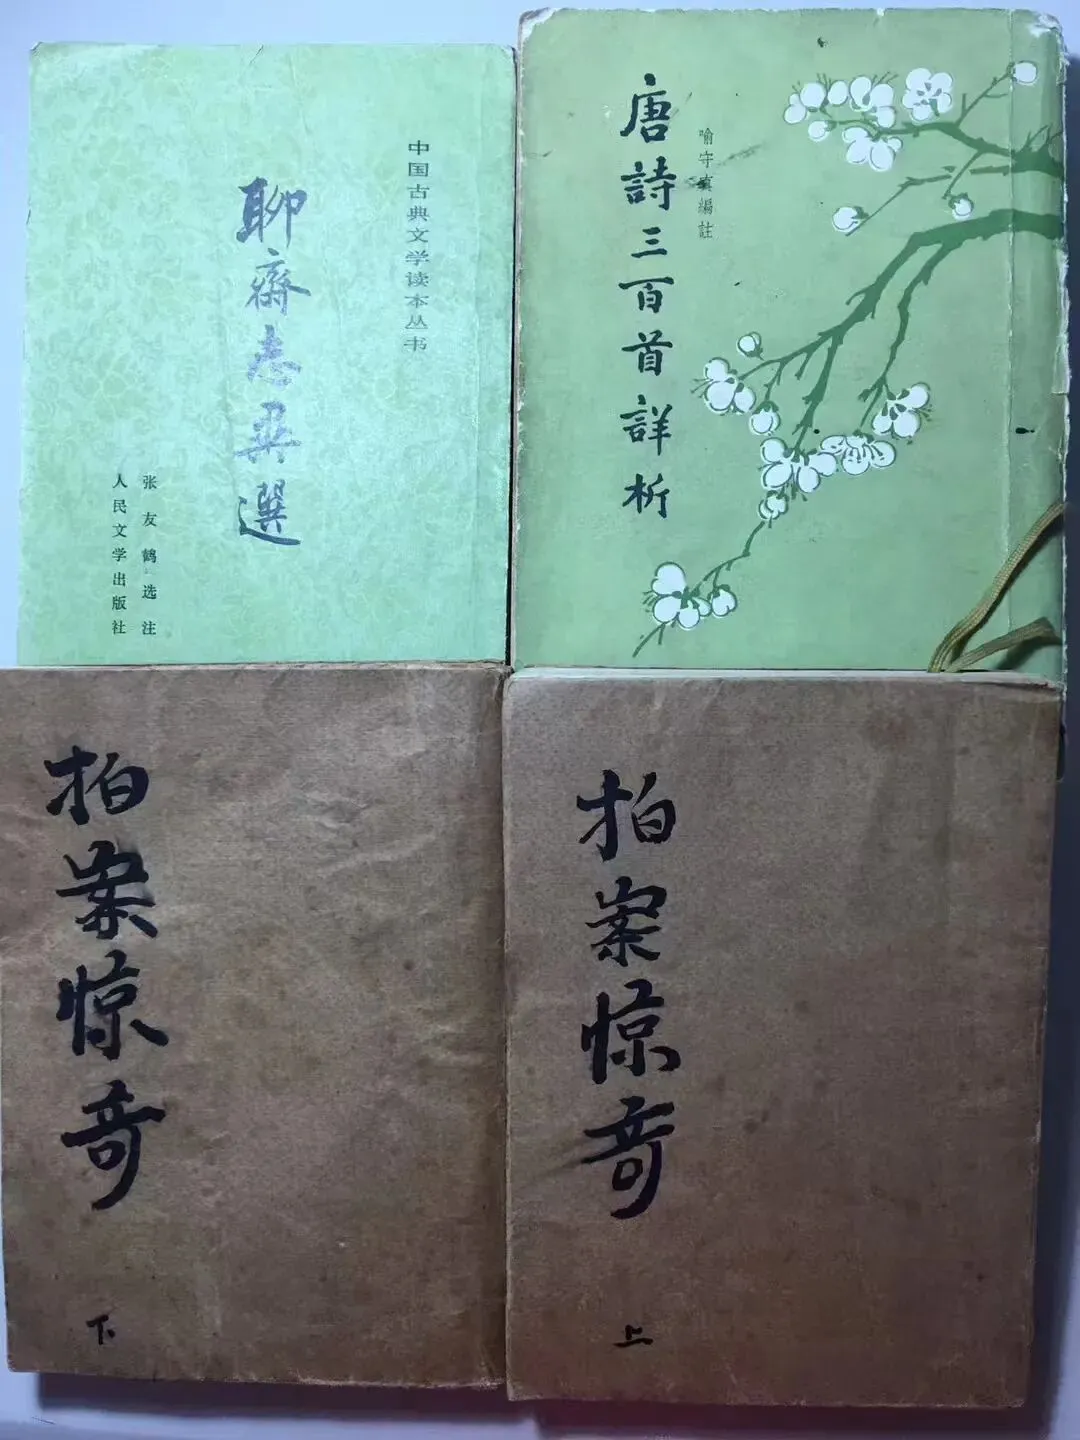 中国古典文学读本丛书
聊斋志异選
张友鹤选注
人民文学出版社
唐詩三百首詳析
喻守真編註
拍案惊奇
下
拍案惊奇
上